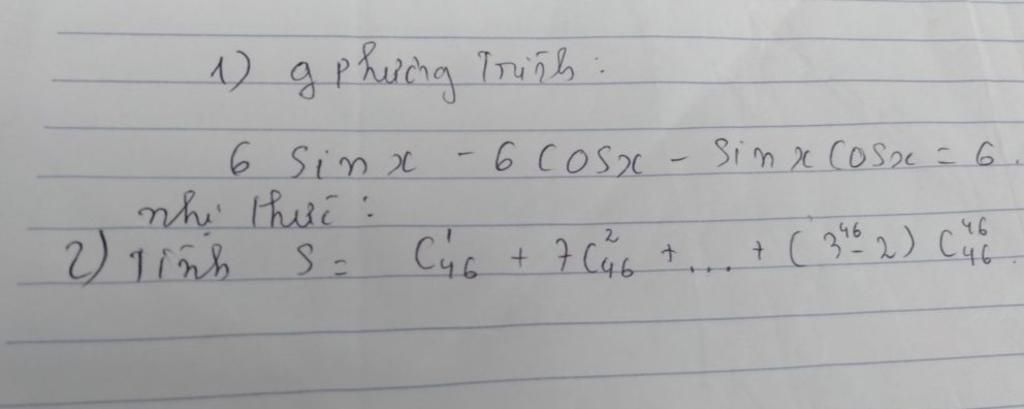 1) g phương Trình :
6 sinx - 6 cosx - sinx cosx = 6.
nhị thức :
2) Tính S = C¹₄₆ + 7C²₄₆ + ... + (3⁴⁶ - 2) C⁴⁶₄₆